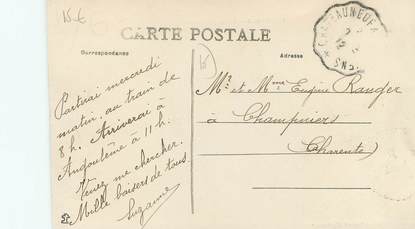 15 €
CARTE POSTALE
Correspondance
Adresse
CHATEAUNEUF
Partirai mercredi
matin, au train de
8 h. Arriverai à
Angoulême à 11 h.
Venez me chercher.
Mille baisers de tous.
Suzanne
Mr et Mme Eugène Ranger
à Champniers
(Charente)